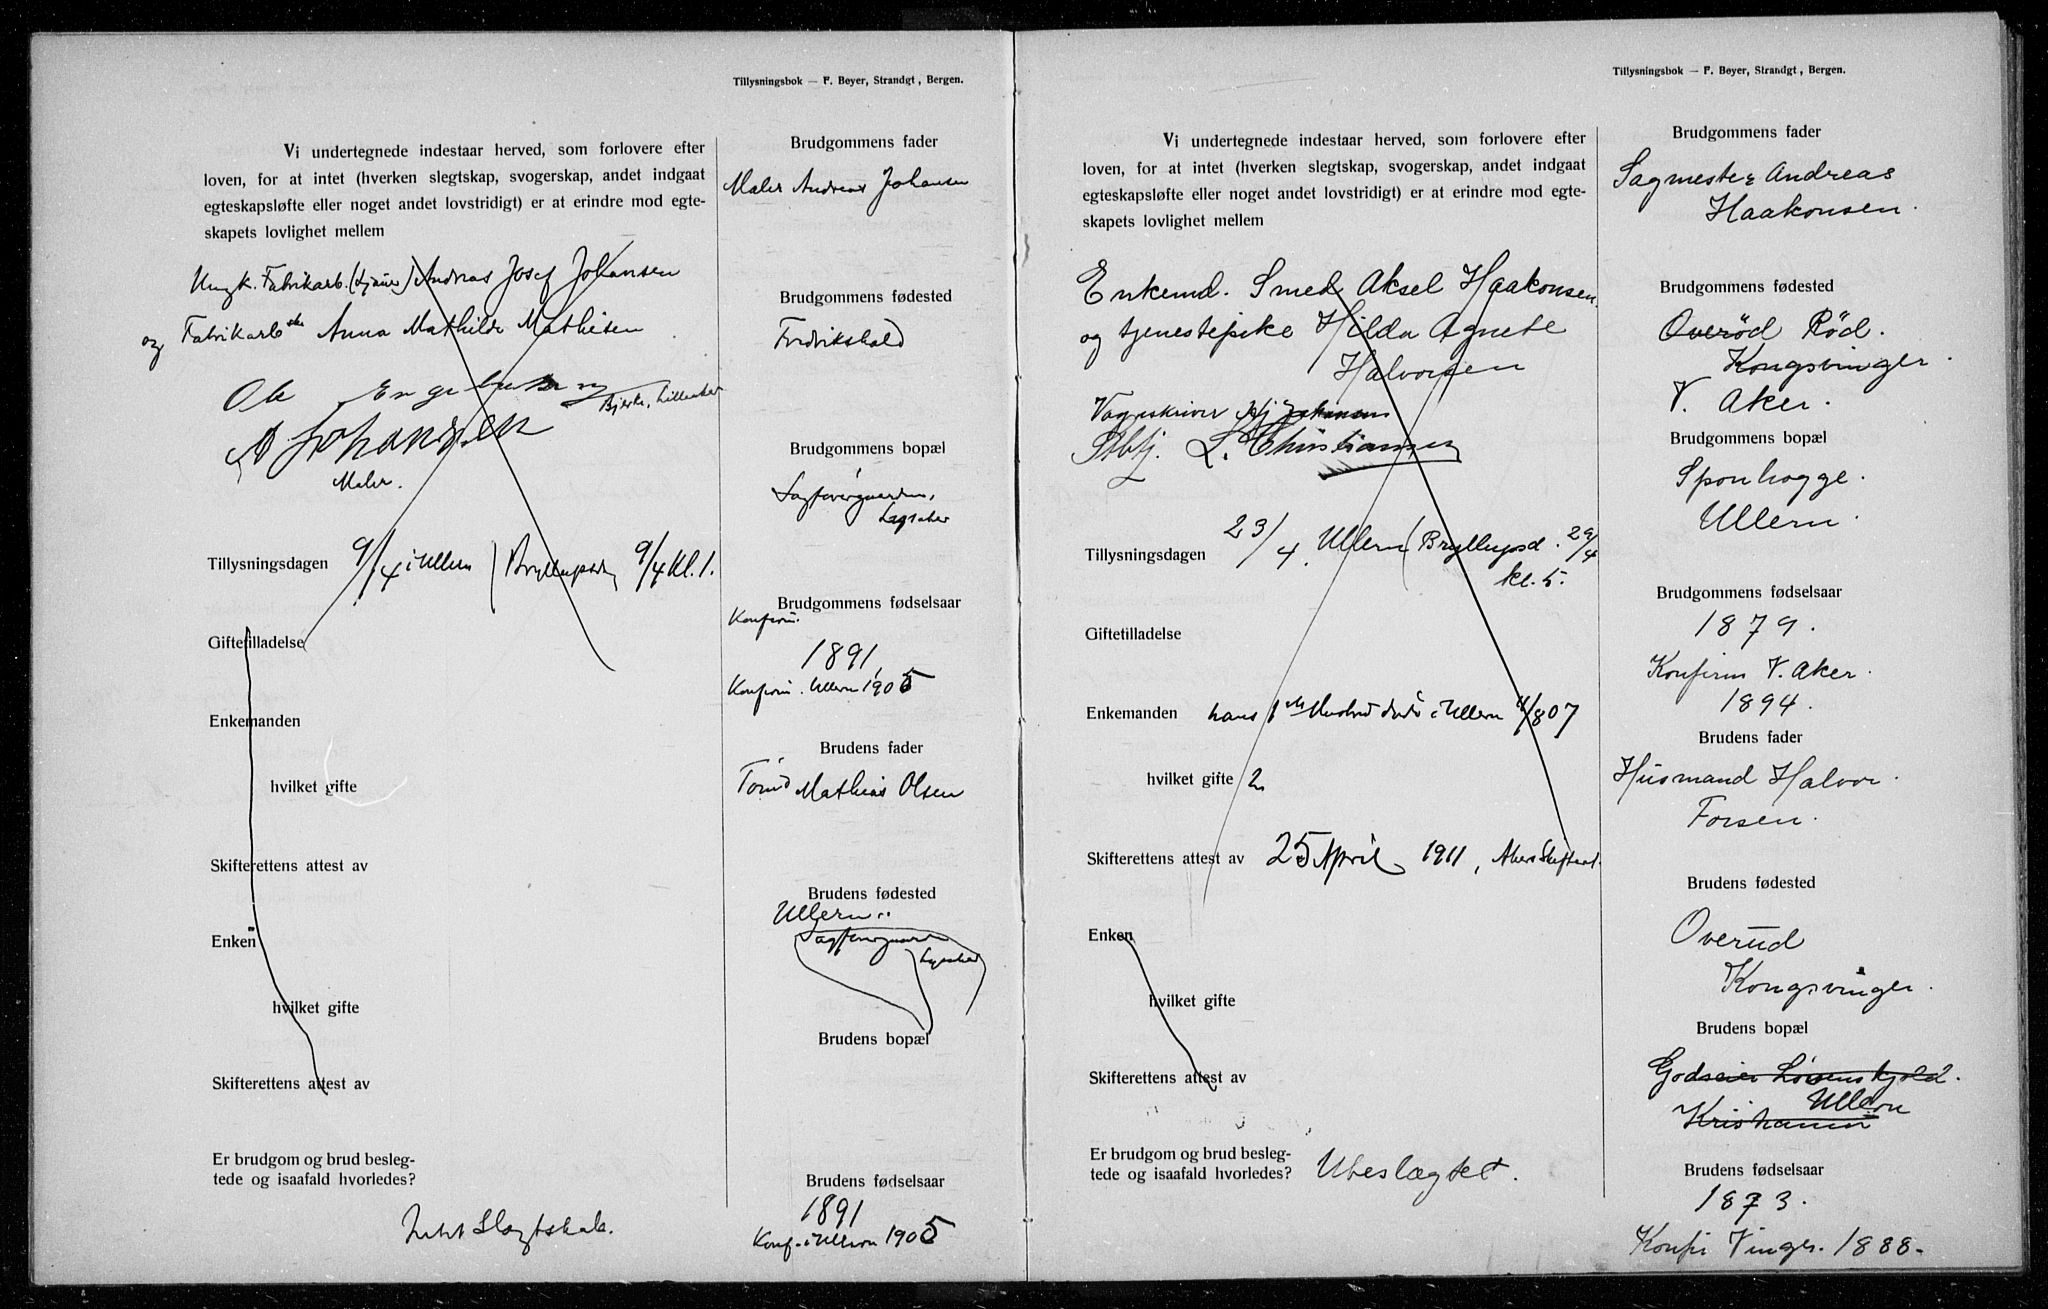 Tillysningsbok — F. Beyer, Strandgt, Bergen.
Vi undertegnede indestaar herved, som forlovere efter
loven, for at intet (hverken slegtskap, svogerskap, andet indgaat
egteskapsløfte eller noget andet lovstridigt) er at erindre mod egte-
skapets lovlighet mellem
Ungk. Fabrikarb. Andreas Josef Johansen
og Fabrikarb.ske Anna Mathilde Mathisen
Ole Engebretsen
Bjerke, Lilleaker
A Johansen
Maler.
Tillysningsdagen 9/4 i Ullern (Bryllupsdag 9/4 kl. 1.
Giftetilladelse
Enkemanden
hvilket gifte
Skifterettens attest av
Enken
hvilket gifte
Skifterettens attest av
Er brudgom og brud besleg-
tede og isaafald hvorledes?
Intet Slægtskab.
Brudgommens fader
Maler Andreas Johansen
Brudgommens fødested
Fredrikshald
Brudgommens bopæl
Brudgommens fødselsaar
Konfirm.
1891
Konfirm. Ullern 1905
Brudens fader
Tømd Mathias Olsen
Brudens fødested
Ullern
Brudens bopæl
Brudens fødselsaar
1891
Konf. i Ullern 1905
Tillysningsbok — F. Beyer, Strandgt, Bergen.
Vi undertegnede indestaar herved, som forlovere efter
loven, for at intet (hverken slegtskap, svogerskap, andet indgaat
egteskapsløfte eller noget andet lovstridigt) er at erindre mod egte-
skapets lovlighet mellem
Enkemd. Smed Aksel Haakonsen
og tjenestepike Hilda Agnete
Halvorsen
Vognskriver Hj Johansen
Stbtj. L. Christiansen
Tillysningsdagen 23/4. Ullern (Bryllupsd. 29/4
kl. 5.
Giftetilladelse
Enkemanden hans 1ste Hustru døde i Ullern 4/8 07
hvilket gifte 2
Skifterettens attest av 25 April 1911, Akers Skifteret.
Enken
hvilket gifte
Skifterettens attest av
Er brudgom og brud besleg-
tede og isaafald hvorledes? Ubeslægtet.
Brudgommens fader
Sagmester Andreas
Haakonsen.
Brudgommens fødested
Overød Rød.
Kongsvinger.
V. Aker.
Brudgommens bopæl
Sponhogge.
Ullern.
Brudgommens fødselsaar
1879.
Konfirm V. Aker.
1894.
Brudens fader
Husmand Halvor
Forsen.
Brudens fødested
Overud
Kongsvinger.
Brudens bopæl
Godseier Løvenskjold.
Ullern
Kristiania
Brudens fødselsaar
1873.
Konfi Vinger. 1888.